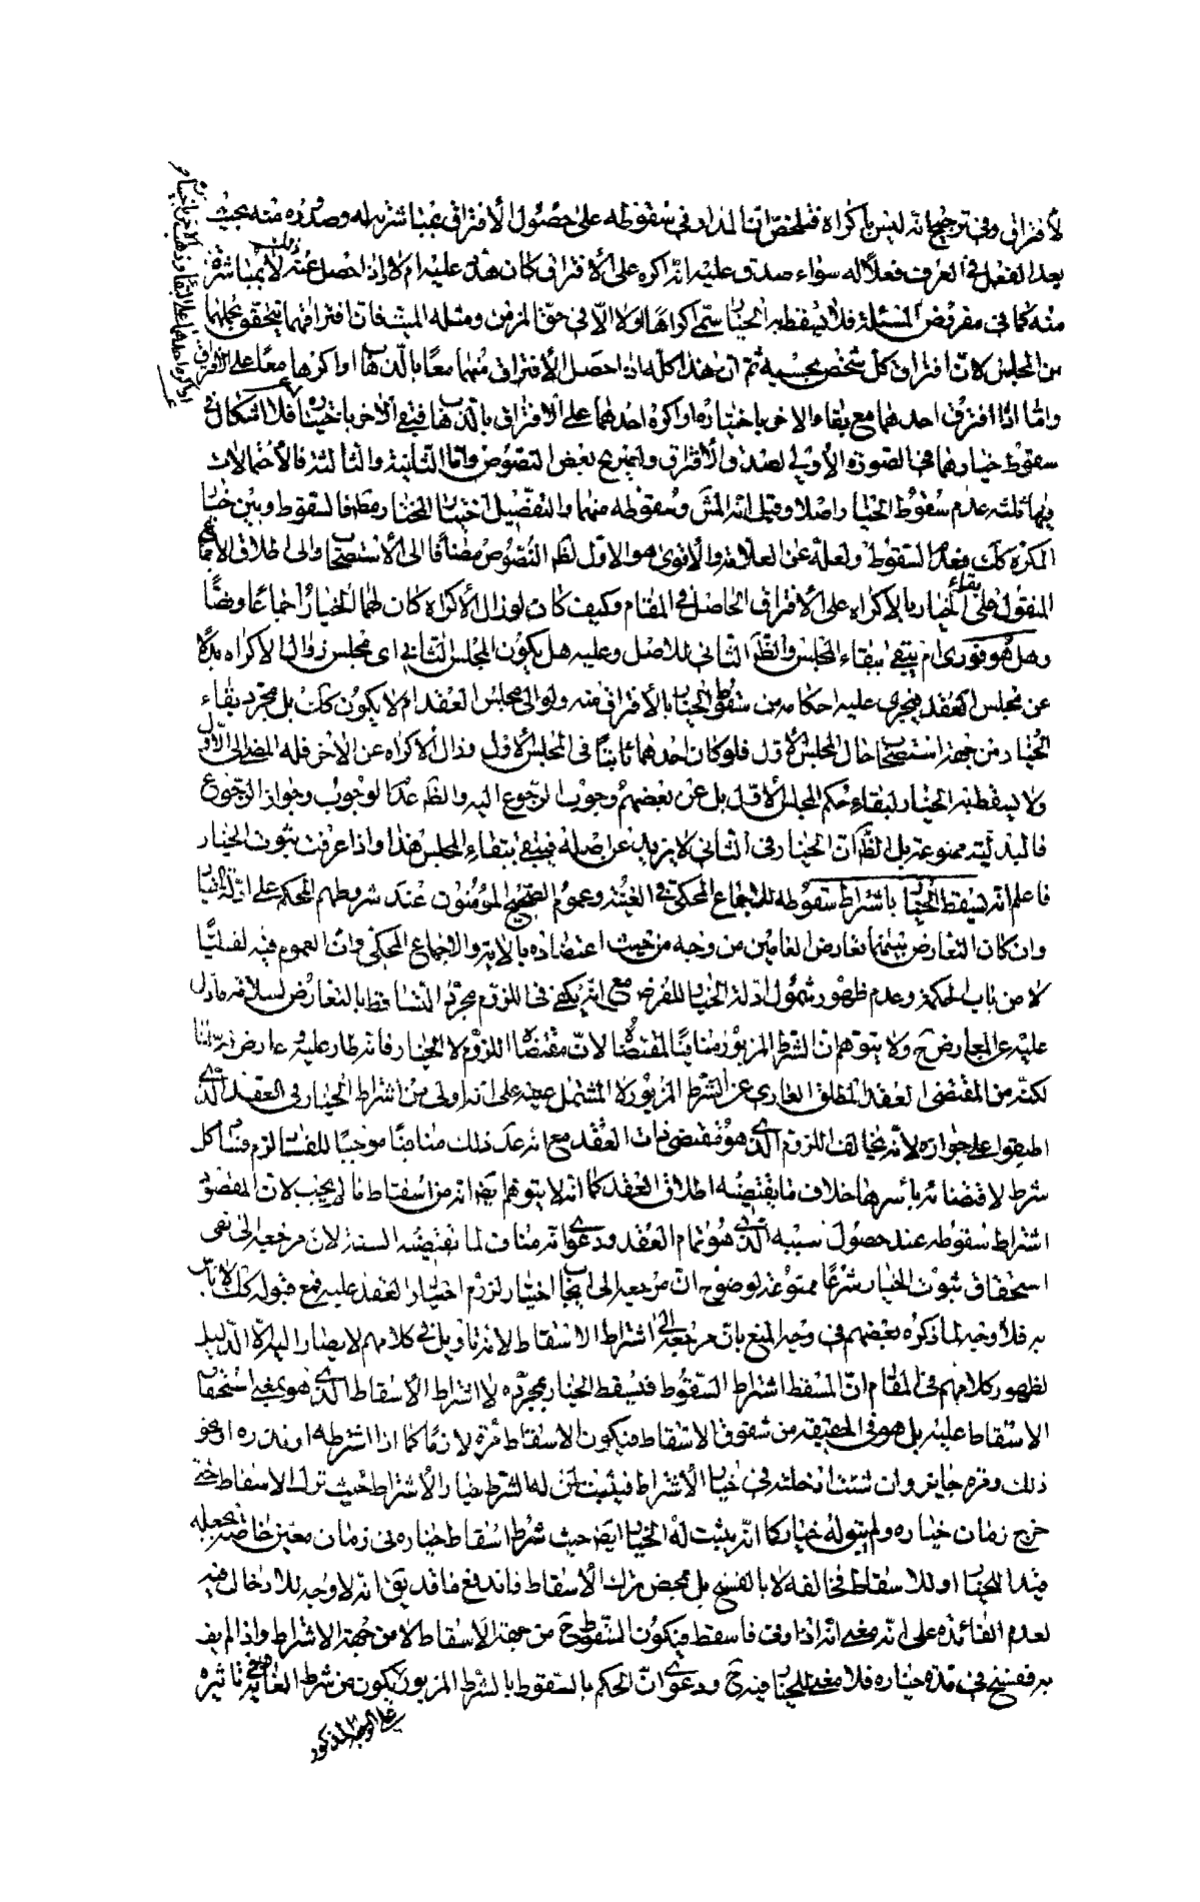 لأفتراق وفي ترجيح انه ليس بإكراه فتلخص ان المدار في سقوطه على حصول الأفتراق بمباشرته له وصدوره منه بحيث
يعد الفعل في العرف فعلا له سواء صدق عليه انه اكره على الأفتراق كان هدد عليه ام لا واذا لم يحصل عنه ذلك لا بمباشرة
منه كما في مفروض المسئلة فلا يسقط به الخيار سمى اكراها اولا الا في حق المزمن ومثله الميت فان افتراقهما يتحقق بحملهما
من المجلس لان افتراق كل شخص بحسبه ثم ان هذا كله اذا حصل الأفتراق منهما معا بالذهاب او اكرها معا على الافتراق
واما اذا افترق احدهما مع بقاء الاخر باختياره او اكره احدهما على الافتراق بالذهاب فبقى الاخر باختياره فلا اشكال في
سقوط خيارهما في الصورة الأولى لصدق الأفتراق ولصريح بعض النصوص واما الثانية والثالثة فالأحتمالات
فيها ثلثة عدم سقوط الخيار اصلا وقيل انه المش وسقوطه منهما والتفصيل بين خيار المختار منهما فالسقوط وبين خيار
المكره كك فعدم السقوط ولعله عن العلامة والأقوى هو الاول لظ النصوص مضافا الى الأستصحاب والى اطلاق الأجماع
المنقول على بقاء الخيار بالأكراه على الأفتراق الحاصل في المقام وكيف كان لو زال الأكراه كان لهما الخيار اجماعا ونصا
وهل هو فوري ام يبقى ببقاء المجلس والظ الثاني للاصل وعليه هل يكون المجلس الثاني اي مجلس زوال الاكراه بدلا
عن مجلس العقد فيجري عليه احكامه من سقوط الخيار بالأفتراق منه ولو الى مجلس العقد ام لا يكون كك بل مجرد بقاء
الخيار من جهة استصحاب حال المجلس الأول فلو كان احدهما ثابتا في المجلس الأول وزال الأكراه عن الأخر فله المضي الى الأول
ولا يسقط به الخيار لبقاء حكم المجلس الأول بل عن بعضهم وجوب الرجوع اليه والظ عدم الوجوب وجواز الرجوع
فالبدلية ممنوعة بل الظ ان الخيار في الثاني لا يزيد عن اصله فيبقى ببقاء المجلس هذا واذا عرفت ثبوت الخيار
فاعلم انه يسقط الخيار باشتراط سقوطه للاجماع المحكي في الغنية وعموم الصحيح المؤمنون عند شروطهم المحكم على ادلة الخيار
وان كان التعارض بينهما تعارض العامين من وجه من حيث اعتضاده بالاية والاجماع المحكي وان العموم فيه لفظيا
لا من باب الحكمة وعدم ظهور شمول ادلة الخيار للفرض مع انه يكفي في اللزوم مجرد التساقط بالتعارض لسلامة ما دل
عليه عن المعارض ح ولا يتوهم ان الشرط المزبور مناف لمقتضاه لان مقتضاه اللزوم لا الخيار فانه طار عليه وعارض
لكنه من المقتضى العقد المطلق العاري عن الشرط المزبور لا المشتمل عليه على انه اولى من اشتراط الخيار في العقد الذي
اطبقوا على جوازه لأنه يخالف اللزوم الذي هو مقتضى ذات العقد مع انه عد ذلك منافيا موجبا للفساد لزم فساد كل
شرط لاقتضائه باسرها خلاف ما يقتضيه اطلاق العقد كما انه لا يتوهم ايض انه من اسقاط ما لم يجب لان المفروض
اشتراط سقوطه عند حصول سببه الذي هو تمام العقد ودعوى انه مناف لما تقتضيه السنة لان مرجعه الى نفي
استحقاق ثبوت الخيار شرعا ممنوعة لوضوح ان مرجعه الى ايجاب اختيار لزوم اختيار العقد عليه فمع قبوله كك لا باس
به فلا وجه لما ذكره بعضهم في وجه المنع بان مرجعه الى اشتراط الاسقاط لأنه تاويل في كلامهم لا يصار اليه الا لدليل
لظهور كلامهم في المقام ان المسقط اشتراط السقوط فيسقط الخيار بمجرده لا اشتراط الأسقاط الذي هو بمعنى استحقاق
الاسقاط عليه بل هو في الحقيقة من شقوق الاسقاط فيكون الاسقاط مرة لازما كما اذا اشترطه او نذره او نحو
ذلك ومرة جايز وان شئت ادخلته في خيار الأشتراط فيثبت لمن له الشرط خيار الأشتراط حيث ترك الاسقاط حتى
خرج زمان خياره ولم يبق له خيار كما انه يثبت له الخيار ايض حيث شرط اسقاط خياره في زمان معين خاصة بجعله
قيدا للخيار او للاسقاط فخالفه لا بالفسخ بل بمحض ترك الأسقاط فاندفع ما قد يق انه لا وجه للادخال فيه
لعدم الفائدة على انه بمعنى انه اذا وفى فاسقط فيكون السقوط ح من جهة الاسقاط لا من جهة الاشتراط واذا لم يف
به ففسخ في مدة خياره فلا معنى للخيار فيه ح ودعوى ان الحكم بالسقوط بالشرط المزبور يكون من شرط الغاية وفي تاثيره
على الوجه المذكور